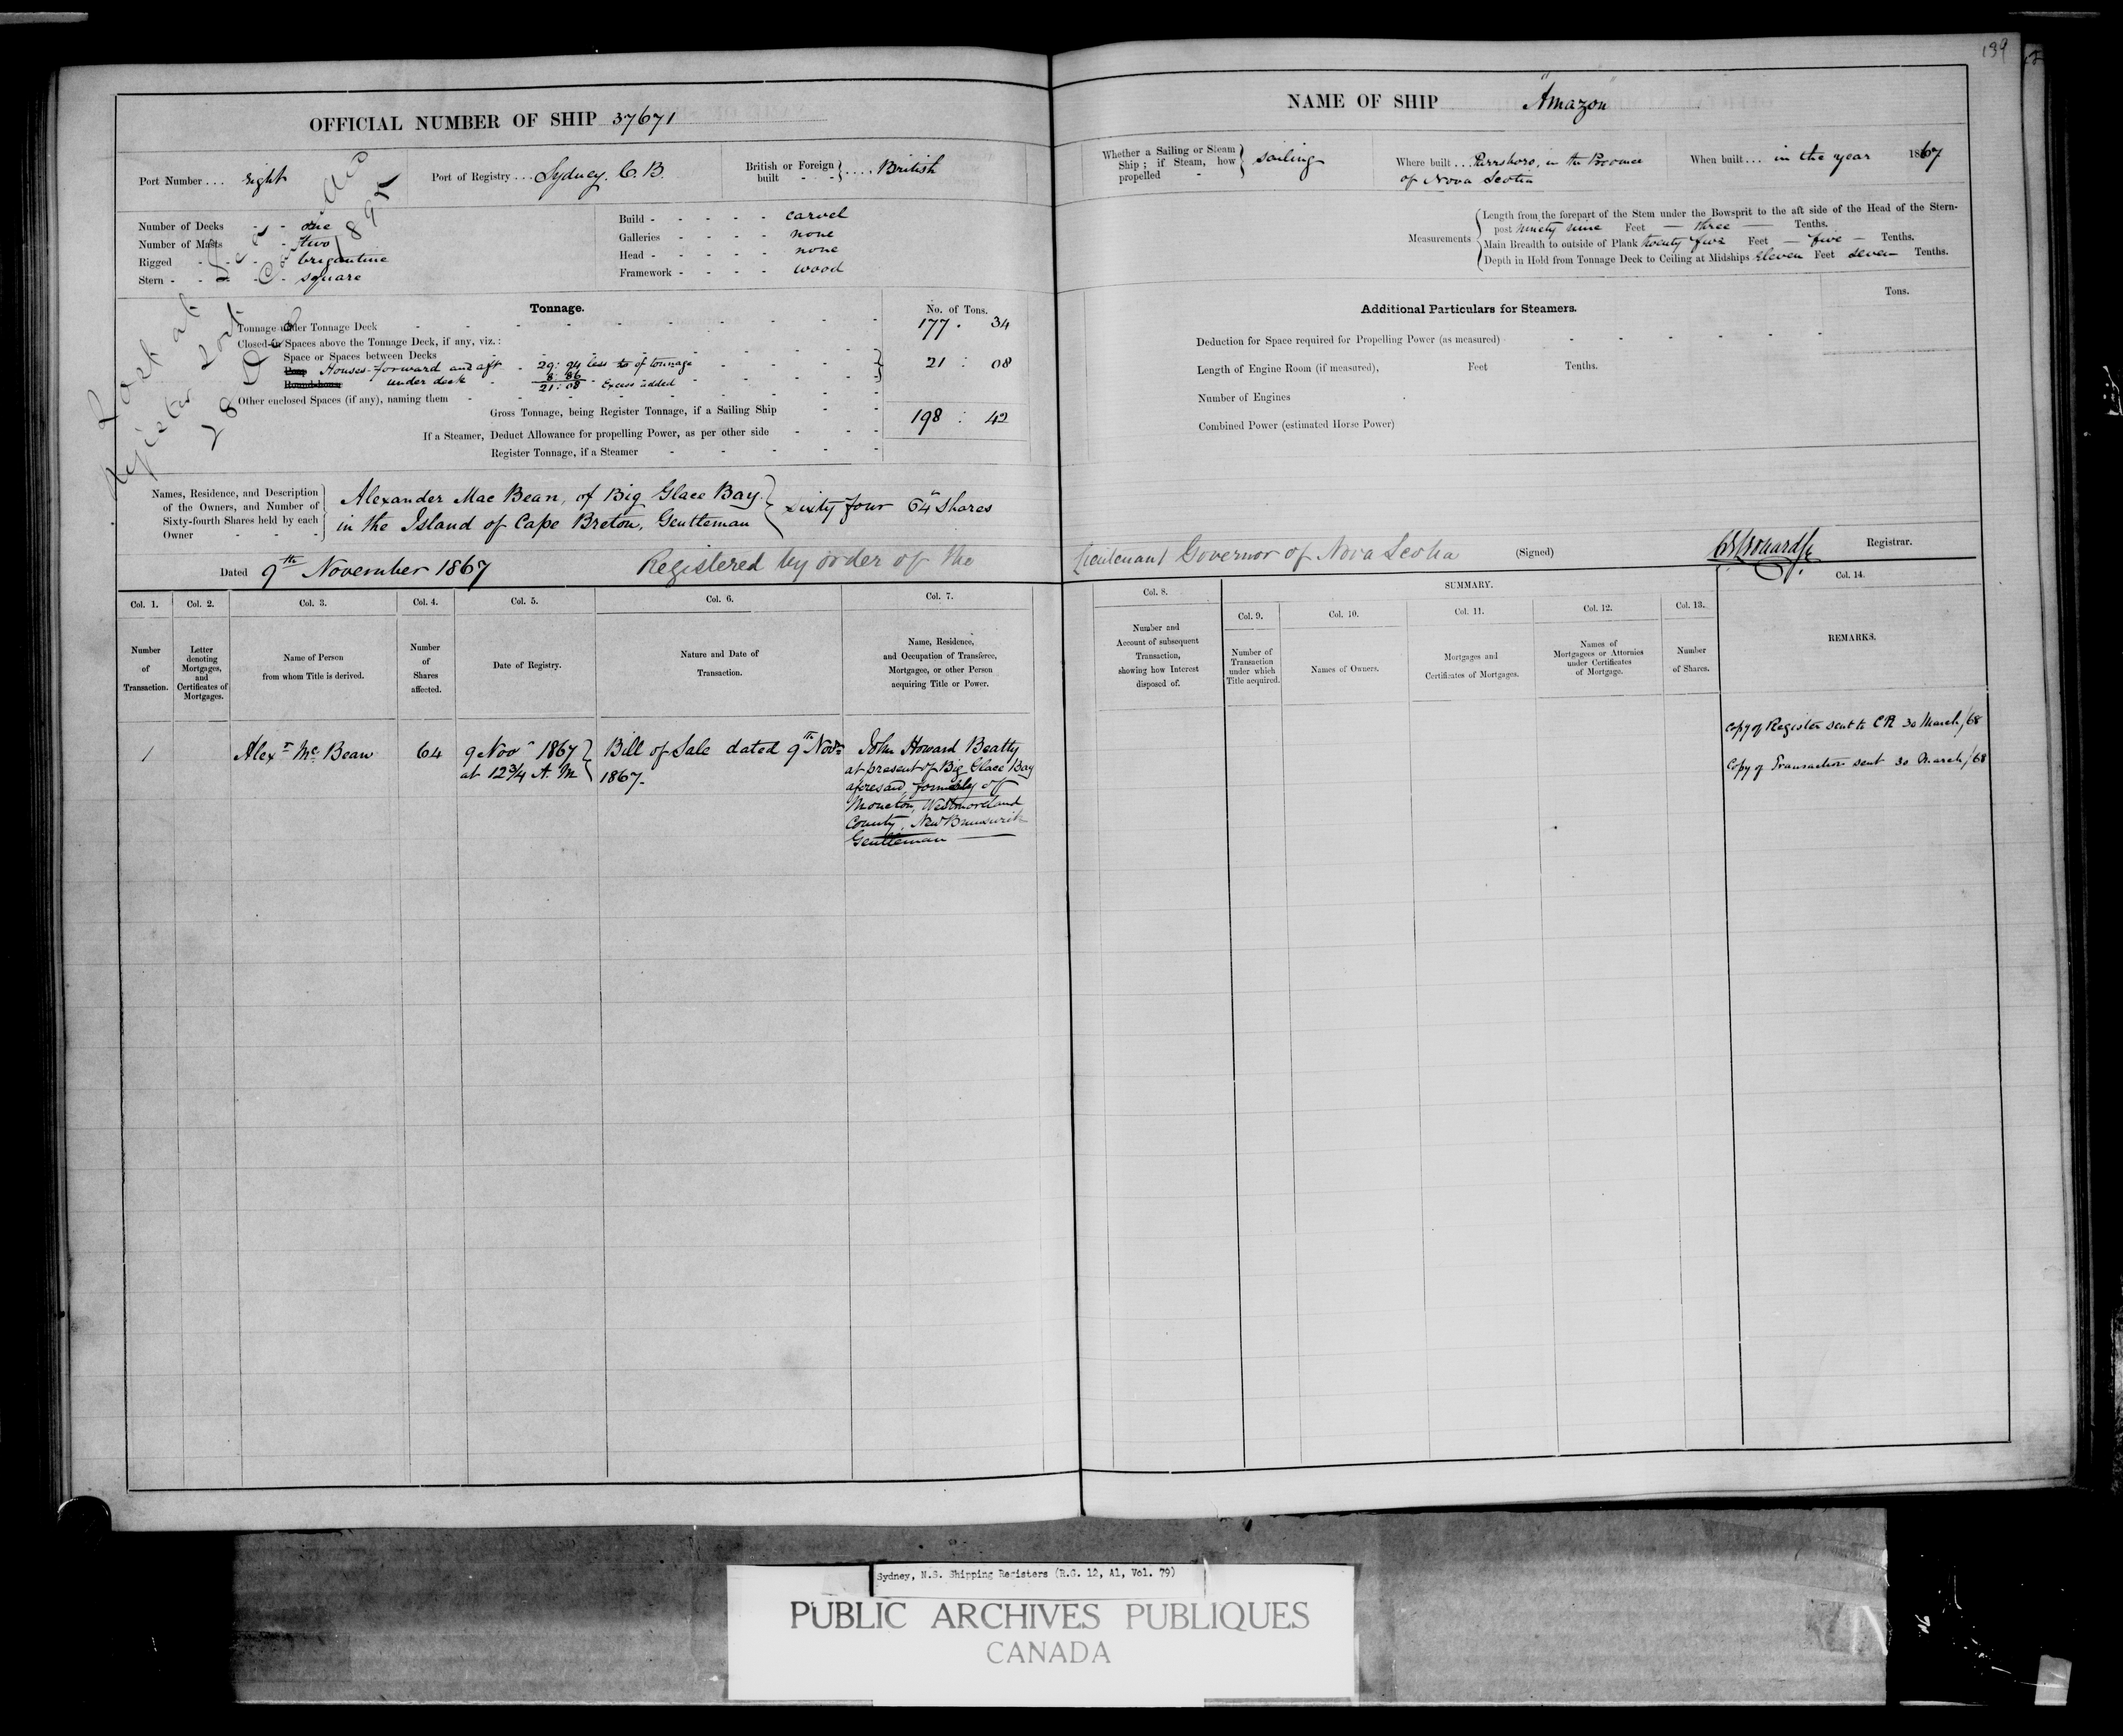 139
OFFICIAL NUMBER OF SHIP 37671
Port Number . . . eight
Port of Registry . . . Sydney. C. B.
British or Foreign built - - } . . . . British
Number of Decks - - one
Number of Masts - two
Rigged - - - brigantine
Stern - - - - square
Build - - - - - carvel
Galleries - - - - none
Head - - - - - none
Framework - - - - wood
Lost at Sea
Register
Tonnage.
No. of Tons.
Tonnage under Tonnage Deck 177 . 34
Closed-in Spaces above the Tonnage Deck, if any, viz. :
Space or Spaces between Decks
Poop Houses forward and aft - 29: 94 less of tonnage 21 : 08
Roundhouse under deck - 8: 86
21: 08 Excess added
Other enclosed Spaces (if any), naming them
Gross Tonnage, being Register Tonnage, if a Sailing Ship 198 : 42
If a Steamer, Deduct Allowance for propelling Power, as per other side
Register Tonnage, if a Steamer
Names, Residence, and Description of the Owners, and Number of Sixty-fourth Shares held by each Owner
Alexander Mac Bean, of Big Glace Bay
in the Island of Cape Breton, Gentleman } Sixty four 64th Shares
Dated 9th November 1867 Registered by order of the
Col. 1. Number of Transaction.
Col. 2. Letter denoting Mortgages, and Certificates of Mortgages.
Col. 3. Name of Person from whom Title is derived.
Col. 4. Number of Shares affected.
Col. 5. Date of Registry.
Col. 6. Nature and Date of Transaction.
Col. 7. Name, Residence, and Occupation of Transferee, Mortgagee, or other Person acquiring Title or Power.
1
Alexr Mc Bean
64
9 Novr 1867
at 12 3/4 A. M
Bill of Sale dated 9th Novr
1867.
John Howard Beatty
at present of Big Glace Bay
aforesaid, formerly of
Moncton, Westmoreland
County, New Brunswick
Gentleman
NAME OF SHIP "Amazon"
Whether a Sailing or Steam Ship ; if Steam, how propelled - } Sailing
Where built . . . Parrsboro, in the Province
of Nova Scotia
When built . . . in the year 1867
Measurements
Length from the forepart of the Stem under the Bowsprit to the aft side of the Head of the Stern-
post ninety nine Feet — three — Tenths.
Main Breadth to outside of Plank twenty five Feet — five — Tenths.
Depth in Hold from Tonnage Deck to Ceiling at Midships Eleven Feet Seven Tenths.
Additional Particulars for Steamers.
Tons.
Deduction for Space required for Propelling Power (as measured)
Length of Engine Room (if measured), Feet Tenths.
Number of Engines
Combined Power (estimated Horse Power)
Lieutenant Governor of Nova Scotia (Signed) Registrar.
SUMMARY.
Col. 8. Number and Account of subsequent Transaction, showing how Interest disposed of.
Col. 9. Number of Transaction under which Title acquired.
Col. 10. Names of Owners.
Col. 11. Mortgages and Certificates of Mortgages.
Col. 12. Names of Mortgagees or Attornies under Certificates of Mortgage.
Col. 13. Number of Shares.
Col. 14. REMARKS.
Copy of Register sent to CR 30 March /68
Copy of Transaction sent 30 March /68
Sydney, N.S. Shipping Registers (R.G. 12, A1, Vol. 79)
PUBLIC ARCHIVES PUBLIQUES
CANADA